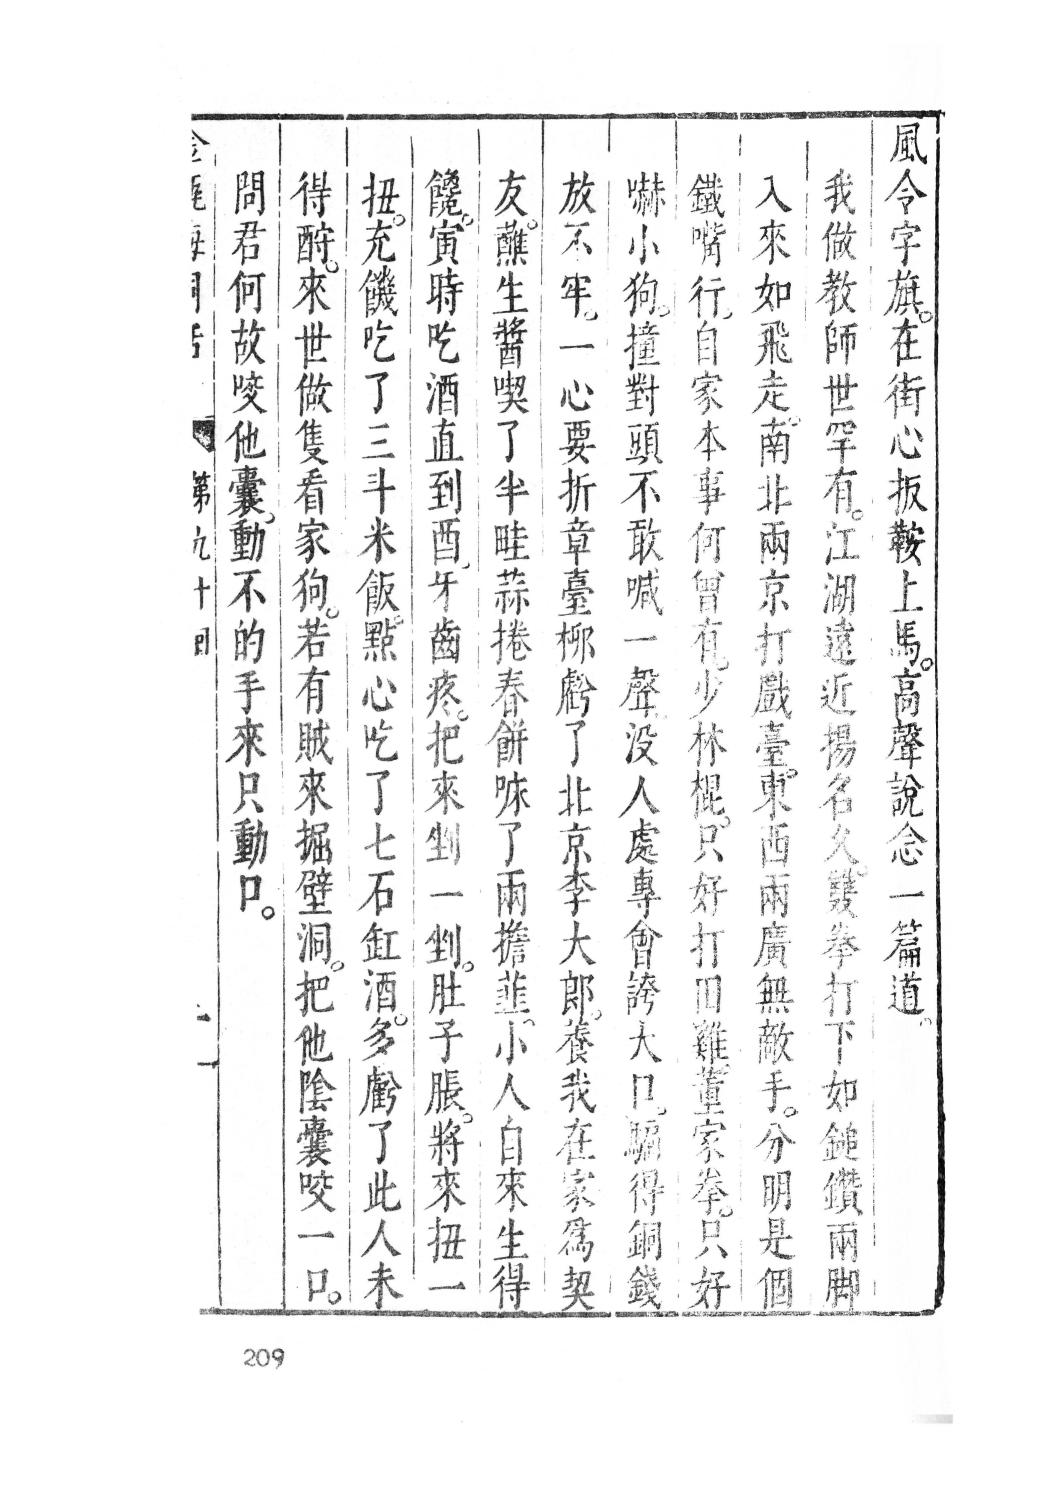 風令字旗。在街心扳鞍上馬。高聲說念一篇道。
我做教師世罕有。江湖遠近揚名久。雙拳打下如鎚鑽兩脚
入來如飛走。南北兩京打戲臺。東西兩廣無敵手。分明是個
鐵嘴行。自家本事何曾有。少林棍。只好打田雞。董家拳。只好
嚇小狗。撞對頭不敢喊一聲。没人處專會誇大口。騙得銅錢
放不牢。一心要折章臺柳。虧了北京李大郎。養我在家爲契
友。蘸生醬喫了半畦蒜。捲春餅哧了兩擔韮。小人自來生得
饞。寅時吃酒直到酉。牙齒疼。把來剉一剉。肚子脹。將來扭一
扭。充饑吃了三斗米飯。點心吃了七石缸酒。多虧了此人未
得酧。來世做隻看家狗。若有賊來掘壁洞。把他陰囊咬一口。
問君何故咬他囊。動不的手來只動口。
第九十回
209